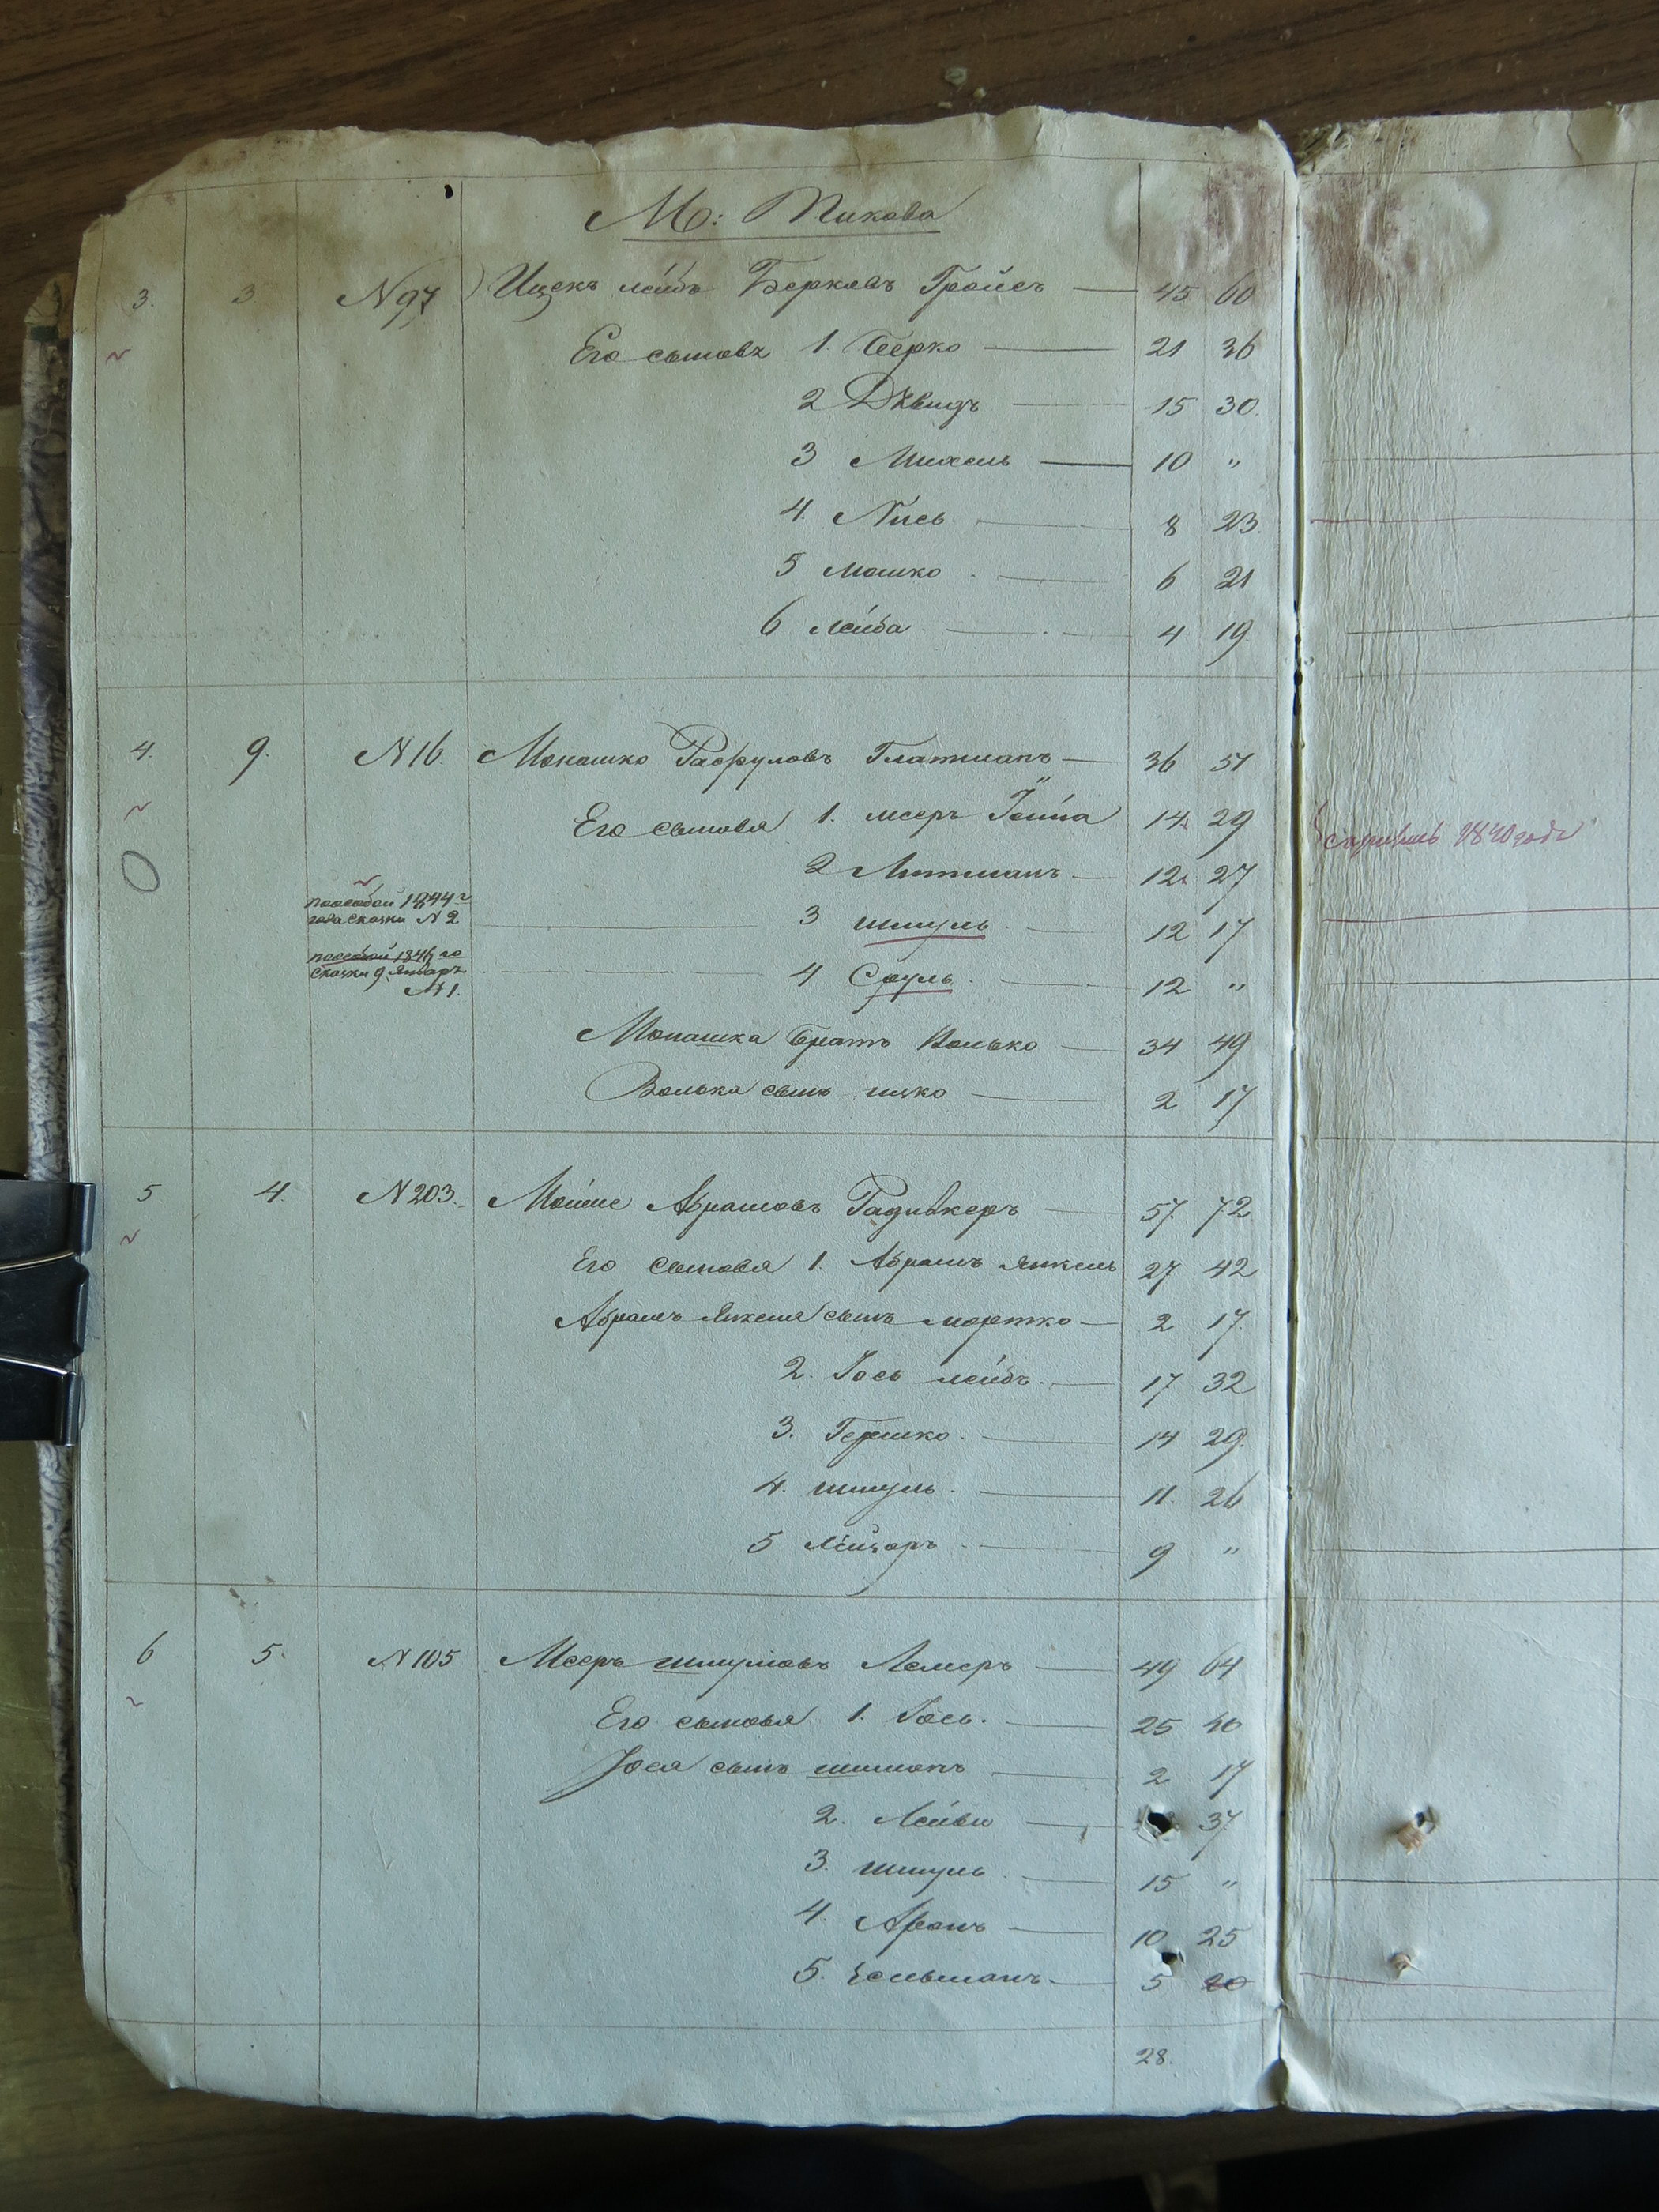 М: Пикова
3. 3 N 97 Ицекъ лейбъ Берковъ Гройсъ 45 60
Его сыновя 1. Берко 21 36
2 Дувидъ 15 30.
3 Михель 10 "
4. 8 23.
5 Мошко 6 21
6 Лейба 4 19.
4. 9. N 16. Монашко Глатманъ 36 51
Его сыновя 1. меръ 14 29
сказались 1840 года
2 Литманъ 12 27
по особой 1844 г
года сказки N 2 3 шмуль 12 17
по особой 1846 го
сказки 9 Январъ 4 Сруль 12 "
N 1.
Монашка братъ Волько 34 49
Волька сынъ ицко 2 17
5 4. N 203. Мойше Абрамовъ 57. 72.
Его сыновя 1. Абрамъ Янкель 27 42
Абрамъ Янкеля сынъ мортко 2 17.
2. Іось лейбъ 17 32
3. Гершко 14 29.
4. шмуль 11. 26
5 Лейзоръ 9 "
6 5. N 105 Мееръ шмулювъ 49 64
Его сыновя 1. Іось. 25 40
Іося сынъ шимонъ 2 17
2. 37
3. шмуль 15 "
4. Аронъ 10 25
5. Зельманъ 5 20
28.